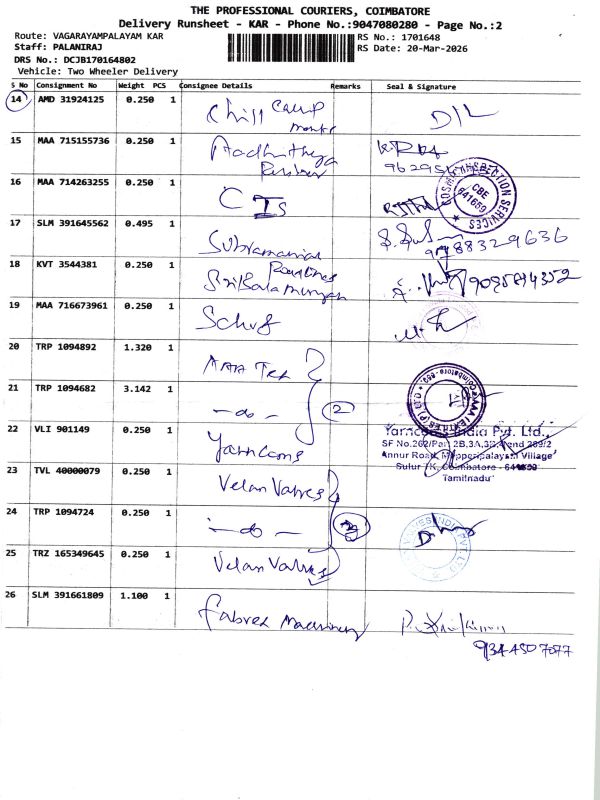 THE PROFESSIONAL COURIERS, COIMBATORE
Delivery Runsheet - KAR - Phone No.:9047080280 - Page No.:2
Route: VAGARAYAMPALAYAM KAR
RS No.: 1701648
Staff: PALANIRAJ
RS Date: 20-Mar-2026
DRS No.: DCJB170164802
Vehicle: Two Wheeler Delivery
S No Consignment No Weight PCS Consignee Details Remarks Seal & Signature
14 AMD 31924125 0.250 1 Chill Camp
15 MAA 715155736 0.250 1
16 MAA 714263255 0.250 1 CTS
COSMO INSPECTION SERVICES
CBE
641659
17 SLM 391645562 0.495 1 Subramaniar
9788329636
18 KVT 3544381 0.250 1 Roadlines
Sri Bala Murugan
19 MAA 716673961 0.250 1
20 TRP 1094892 1.320 1 AAA Tex
21 TRP 1094682 3.142 1 -do- 2
22 VLI 901149 0.250 1 Yarncons
India Pvt. Ltd.,
SF No.262/Part 2B,3A,3B
Annur Road, Mopperipalayam Village
Sulur TK, Coimbatore -
Tamilnadu
23 TVL 40000079 0.250 1 Velan Valves
24 TRP 1094724 0.250 1 -do-
25 TRZ 165349645 0.250 1 Velan Valves
26 SLM 391661809 1.100 1 Fabrex Machinery
9344507077